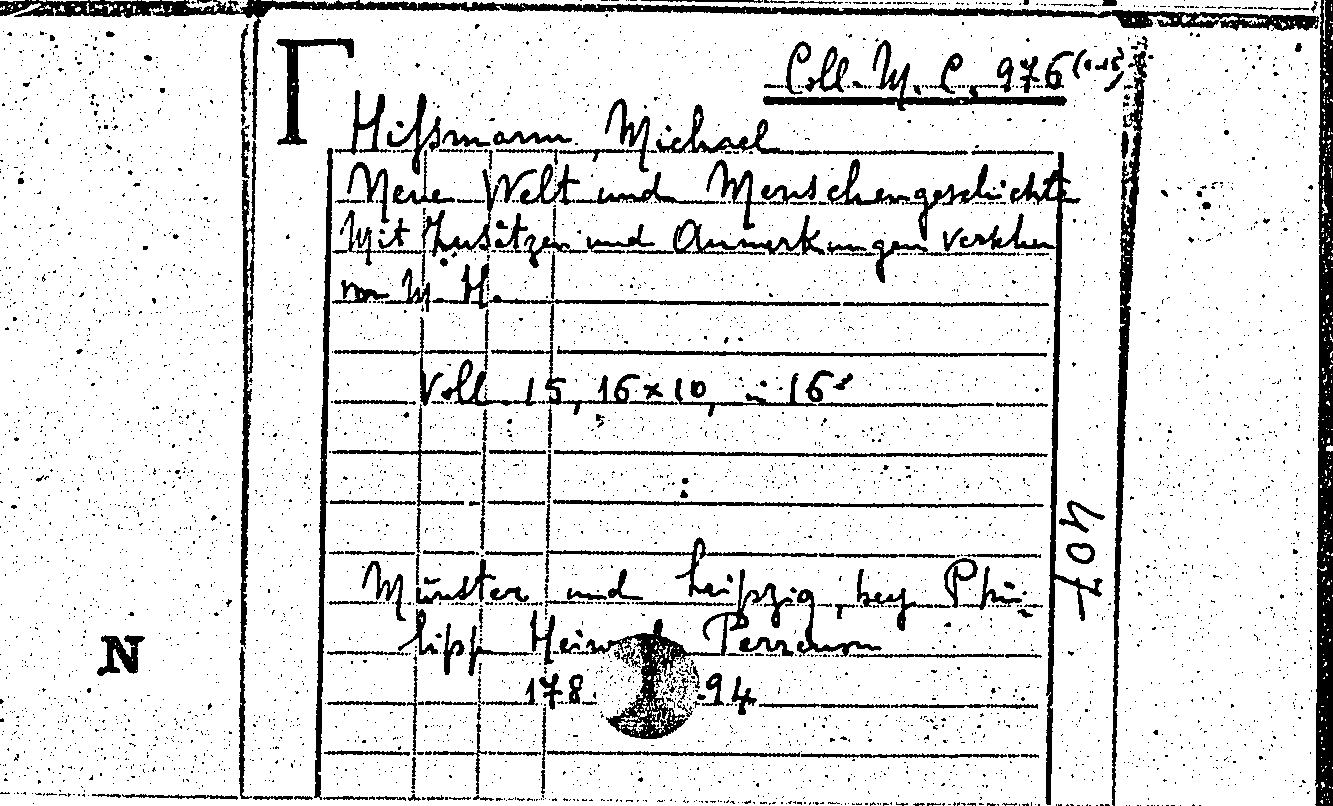 Coll. M. C. 976 (1-15)
Hissmann, Michael
Neue Welt und Menschengeschichte
Mit Zusätzen und Anmerkungen versehen
von M. H.
Voll. 15, 16×10, in 16°
407
Münster und Leipzig, bey Phi-
lipp Heinrich Perrenon
N
178 -94